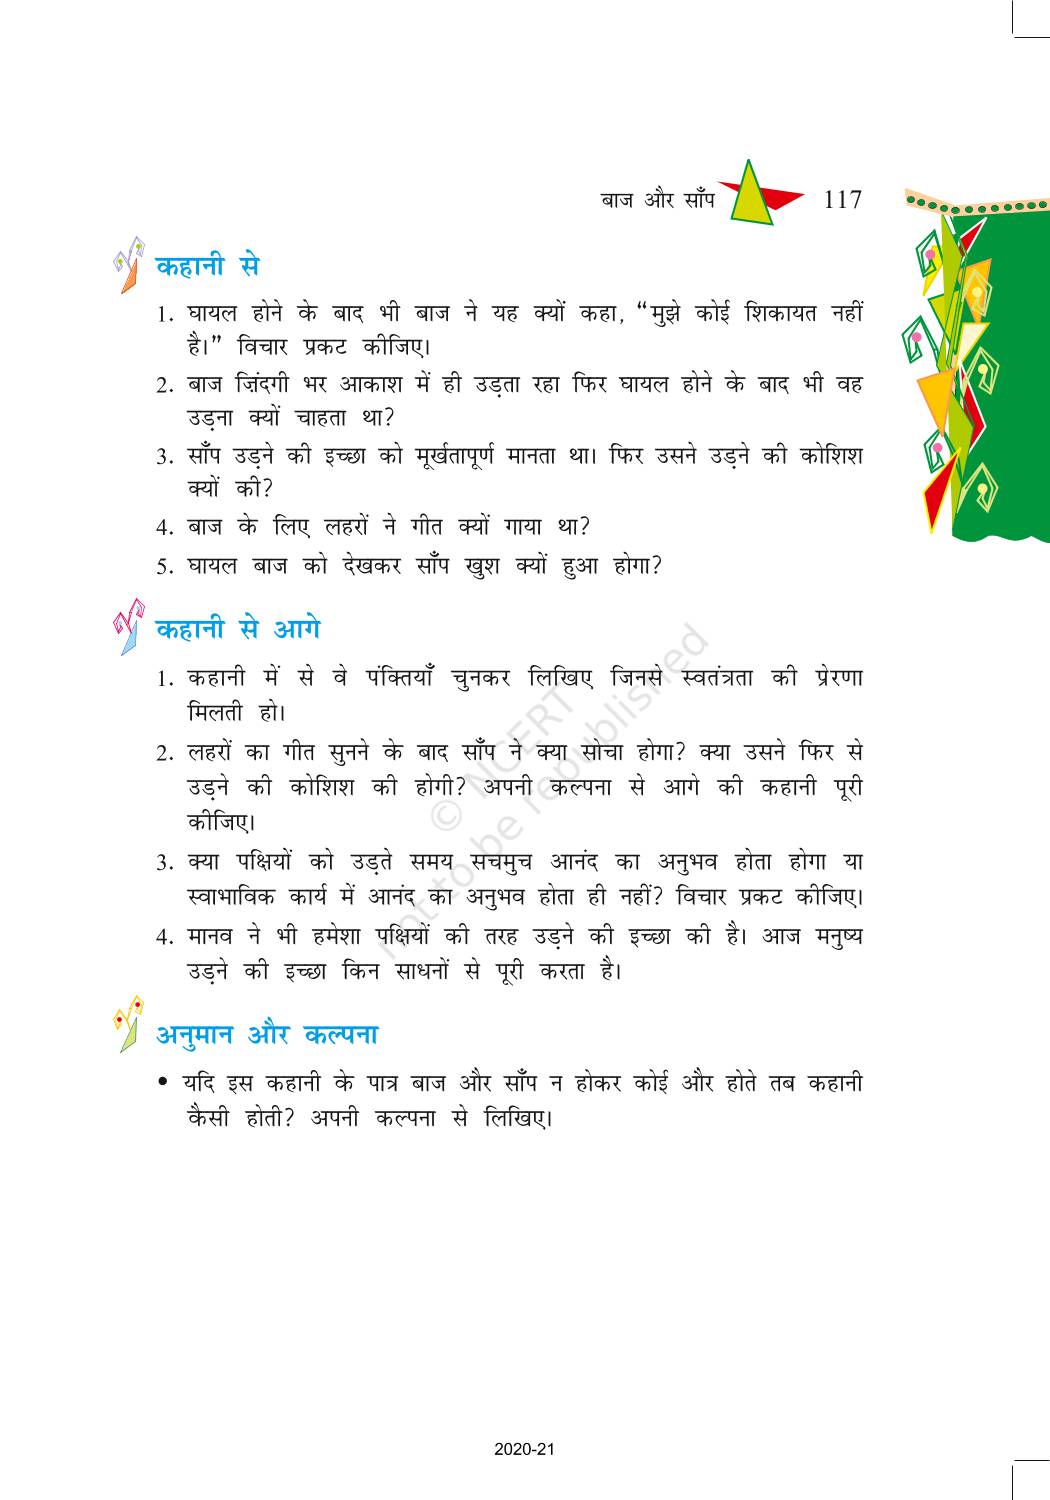 बाज और साँप 117
कहानी से
1. घायल होने के बाद भी बाज ने यह क्यों कहा, “मुझे कोई शिकायत नहीं
है।” विचार प्रकट कीजिए।
2. बाज ज़िंदगी भर आकाश में ही उड़ता रहा फिर घायल होने के बाद भी वह
उड़ना क्यों चाहता था?
3. साँप उड़ने की इच्छा को मूर्खतापूर्ण मानता था। फिर उसने उड़ने की कोशिश
क्यों की?
4. बाज के लिए लहरों ने गीत क्यों गाया था?
5. घायल बाज को देखकर साँप खुश क्यों हुआ होगा?
कहानी से आगे
1. कहानी में से वे पंक्तियाँ चुनकर लिखिए जिनसे स्वतंत्रता की प्रेरणा
मिलती हो।
2. लहरों का गीत सुनने के बाद साँप ने क्या सोचा होगा? क्या उसने फिर से
उड़ने की कोशिश की होगी? अपनी कल्पना से आगे की कहानी पूरी
कीजिए।
3. क्या पक्षियों को उड़ते समय सचमुच आनंद का अनुभव होता होगा या
स्वाभाविक कार्य में आनंद का अनुभव होता ही नहीं? विचार प्रकट कीजिए।
4. मानव ने भी हमेशा पक्षियों की तरह उड़ने की इच्छा की है। आज मनुष्य
उड़ने की इच्छा किन साधनों से पूरी करता है।
अनुमान और कल्पना
• यदि इस कहानी के पात्र बाज और साँप न होकर कोई और होते तब कहानी
कैसी होती? अपनी कल्पना से लिखिए।
© NCERT
not to be republished
2020-21